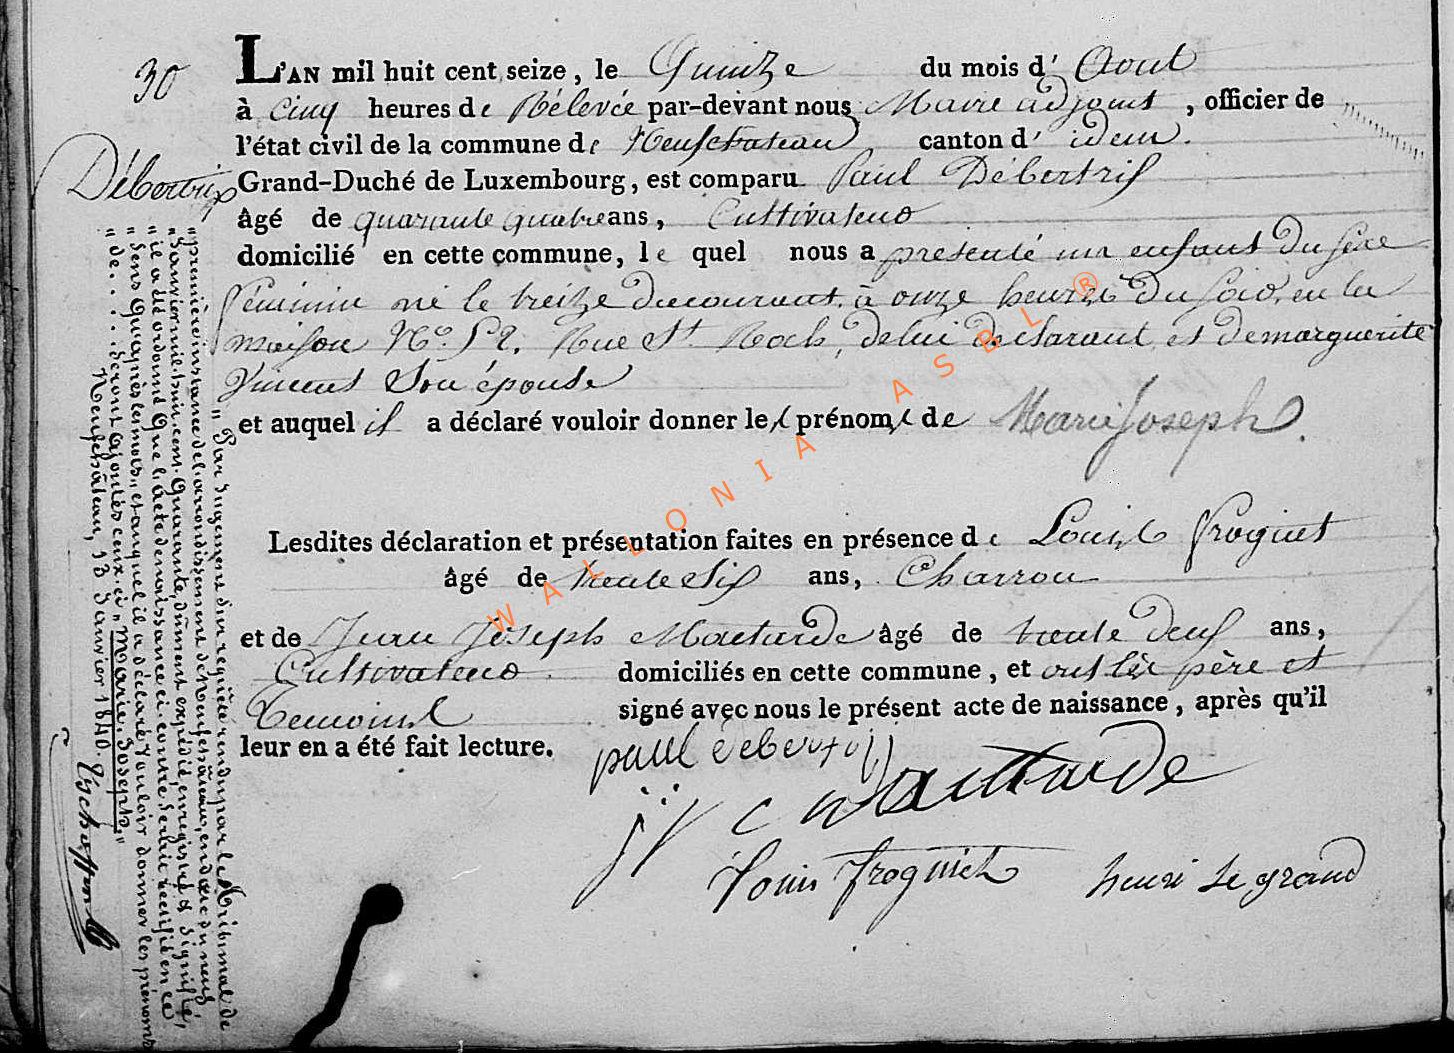 30
L'AN mil huit cent seize, le Quinze du mois d' Aout
à Cinq heures de Rélévée par-devant nous Maire adjoint, officier de
l'état civil de la commune de Neufchateau canton d' idem.
Débertrix
Grand-Duché de Luxembourg, est comparu Paul Débertrix
âgé de quarante quatre ans, Cultivateur
domicilié en cette commune, le quel nous a presenté un enfant du sexe
féminin né le treize du courant, à onze heures du soir, en la
maison No. 52. Rue St. Roch, de lui declarant et de marguerite
Vincent son épouse
et auquel il a déclaré vouloir donner les prénoms de Marie Joseph.
Lesdites déclaration et présentation faites en présence de Louis Froginet
âgé de trente Six ans, Charron
et de Jean Joseph Mactarde âgé de trente deux ans,
Cultivateur domiciliés en cette commune, et ont les père et
Temoins signé avec nous le présent acte de naissance, après qu'il
leur en a été fait lecture.
paul debertrix
Louis froginet henri le grand
" Par Jugement sur requête rendu par le Tribunal de
" première instance de l'arrondissement de Neufchâteau, en date du neuf
" Janvier mil huit cent Quarante, dûment expédié, enregistré & signifié,
" il a été ordonné Que l'acte de naissance ci-contre serait rectifié en ce
" sens Qu'après les mots " et auquel il a déclaré vouloir donner les prénoms
" de.... seront ajoutés ceux-ci " Marie Joseph."
Neufchâteau, 13 Janvier 1840.
WALLONIA ASBL ®